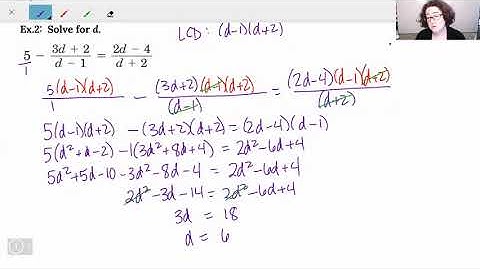 Ex.2: Solve for d.
LCD: (d-1)(d+2)
5/1 - (3d + 2)/(d - 1) = (2d - 4)/(d + 2)
5(d-1)(d+2)/1 - (3d+2)(d-1)(d+2)/(d-1) = (2d-4)(d-1)(d+2)/(d+2)
5(d-1)(d+2) -(3d+2)(d+2) = (2d-4)(d-1)
5(d²+d-2) -1(3d²+8d+4) = 2d²-6d+4
5d²+5d-10-3d²-8d-4 = 2d²-6d+4
2d²-3d-14 = 2d²-6d+4
3d = 18
d = 6